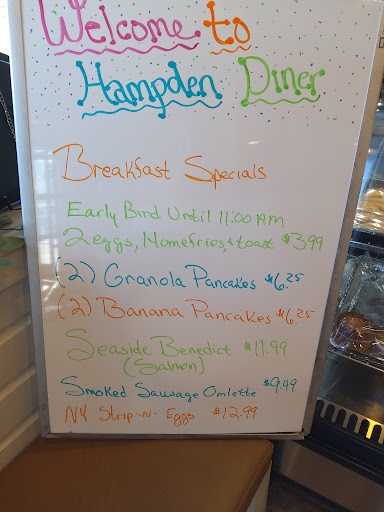 Welcome to
Hampden Diner
Breakfast Specials
Early Bird Until 11:00 AM
2 eggs, Homefries, + toast $3.99
(2) Granola Pancakes $6.25
(2) Banana Pancakes $6.25
Seaside Benedict $11.99
(Salmon)
Smoked Sausage Omlette $9.49
NY Strip-N-Eggs $12.99